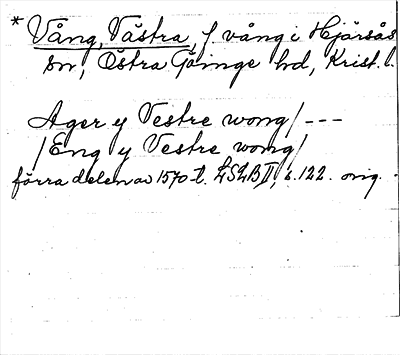 * Vång, Västra, f. vång i Hjärsås
sn, Östra Göinge hd, Krist. l.
Ager y Vestre wong/ ---
/Eng y Vestre wong/
förra delen av 1570-t. LSLB II, s. 122. orig.